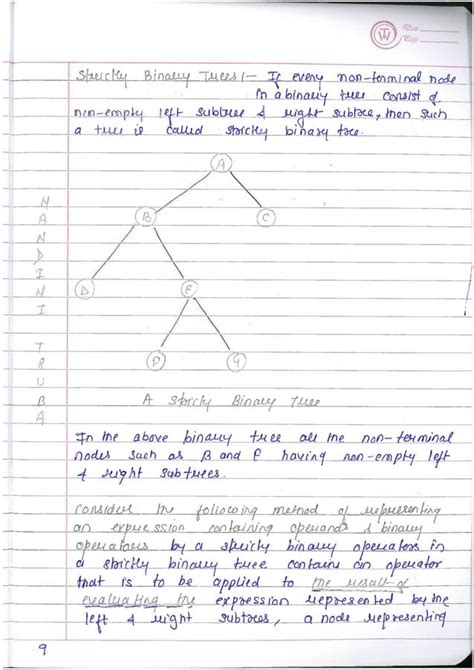 Date
Page
Strictly Binary Trees :- If every non-terminal node
in a binary tree consist of
non-empty left subtree & right subtree, then such
a tree is called strictly binary tree.
A
B
C
D
E
F
G
NANDINI TRUBA
A Strictly Binary Tree
In the above binary tree all the non-terminal
nodes such as B and E having non-empty left
& right subtrees.
Consider the following method of representing
an expression containing operands & binary
operators by a strictly binary operators in
a strictly binary tree contains an operator
that is to be applied to the result of
evaluating the expression represented by the
left & right subtrees, a node representing
9